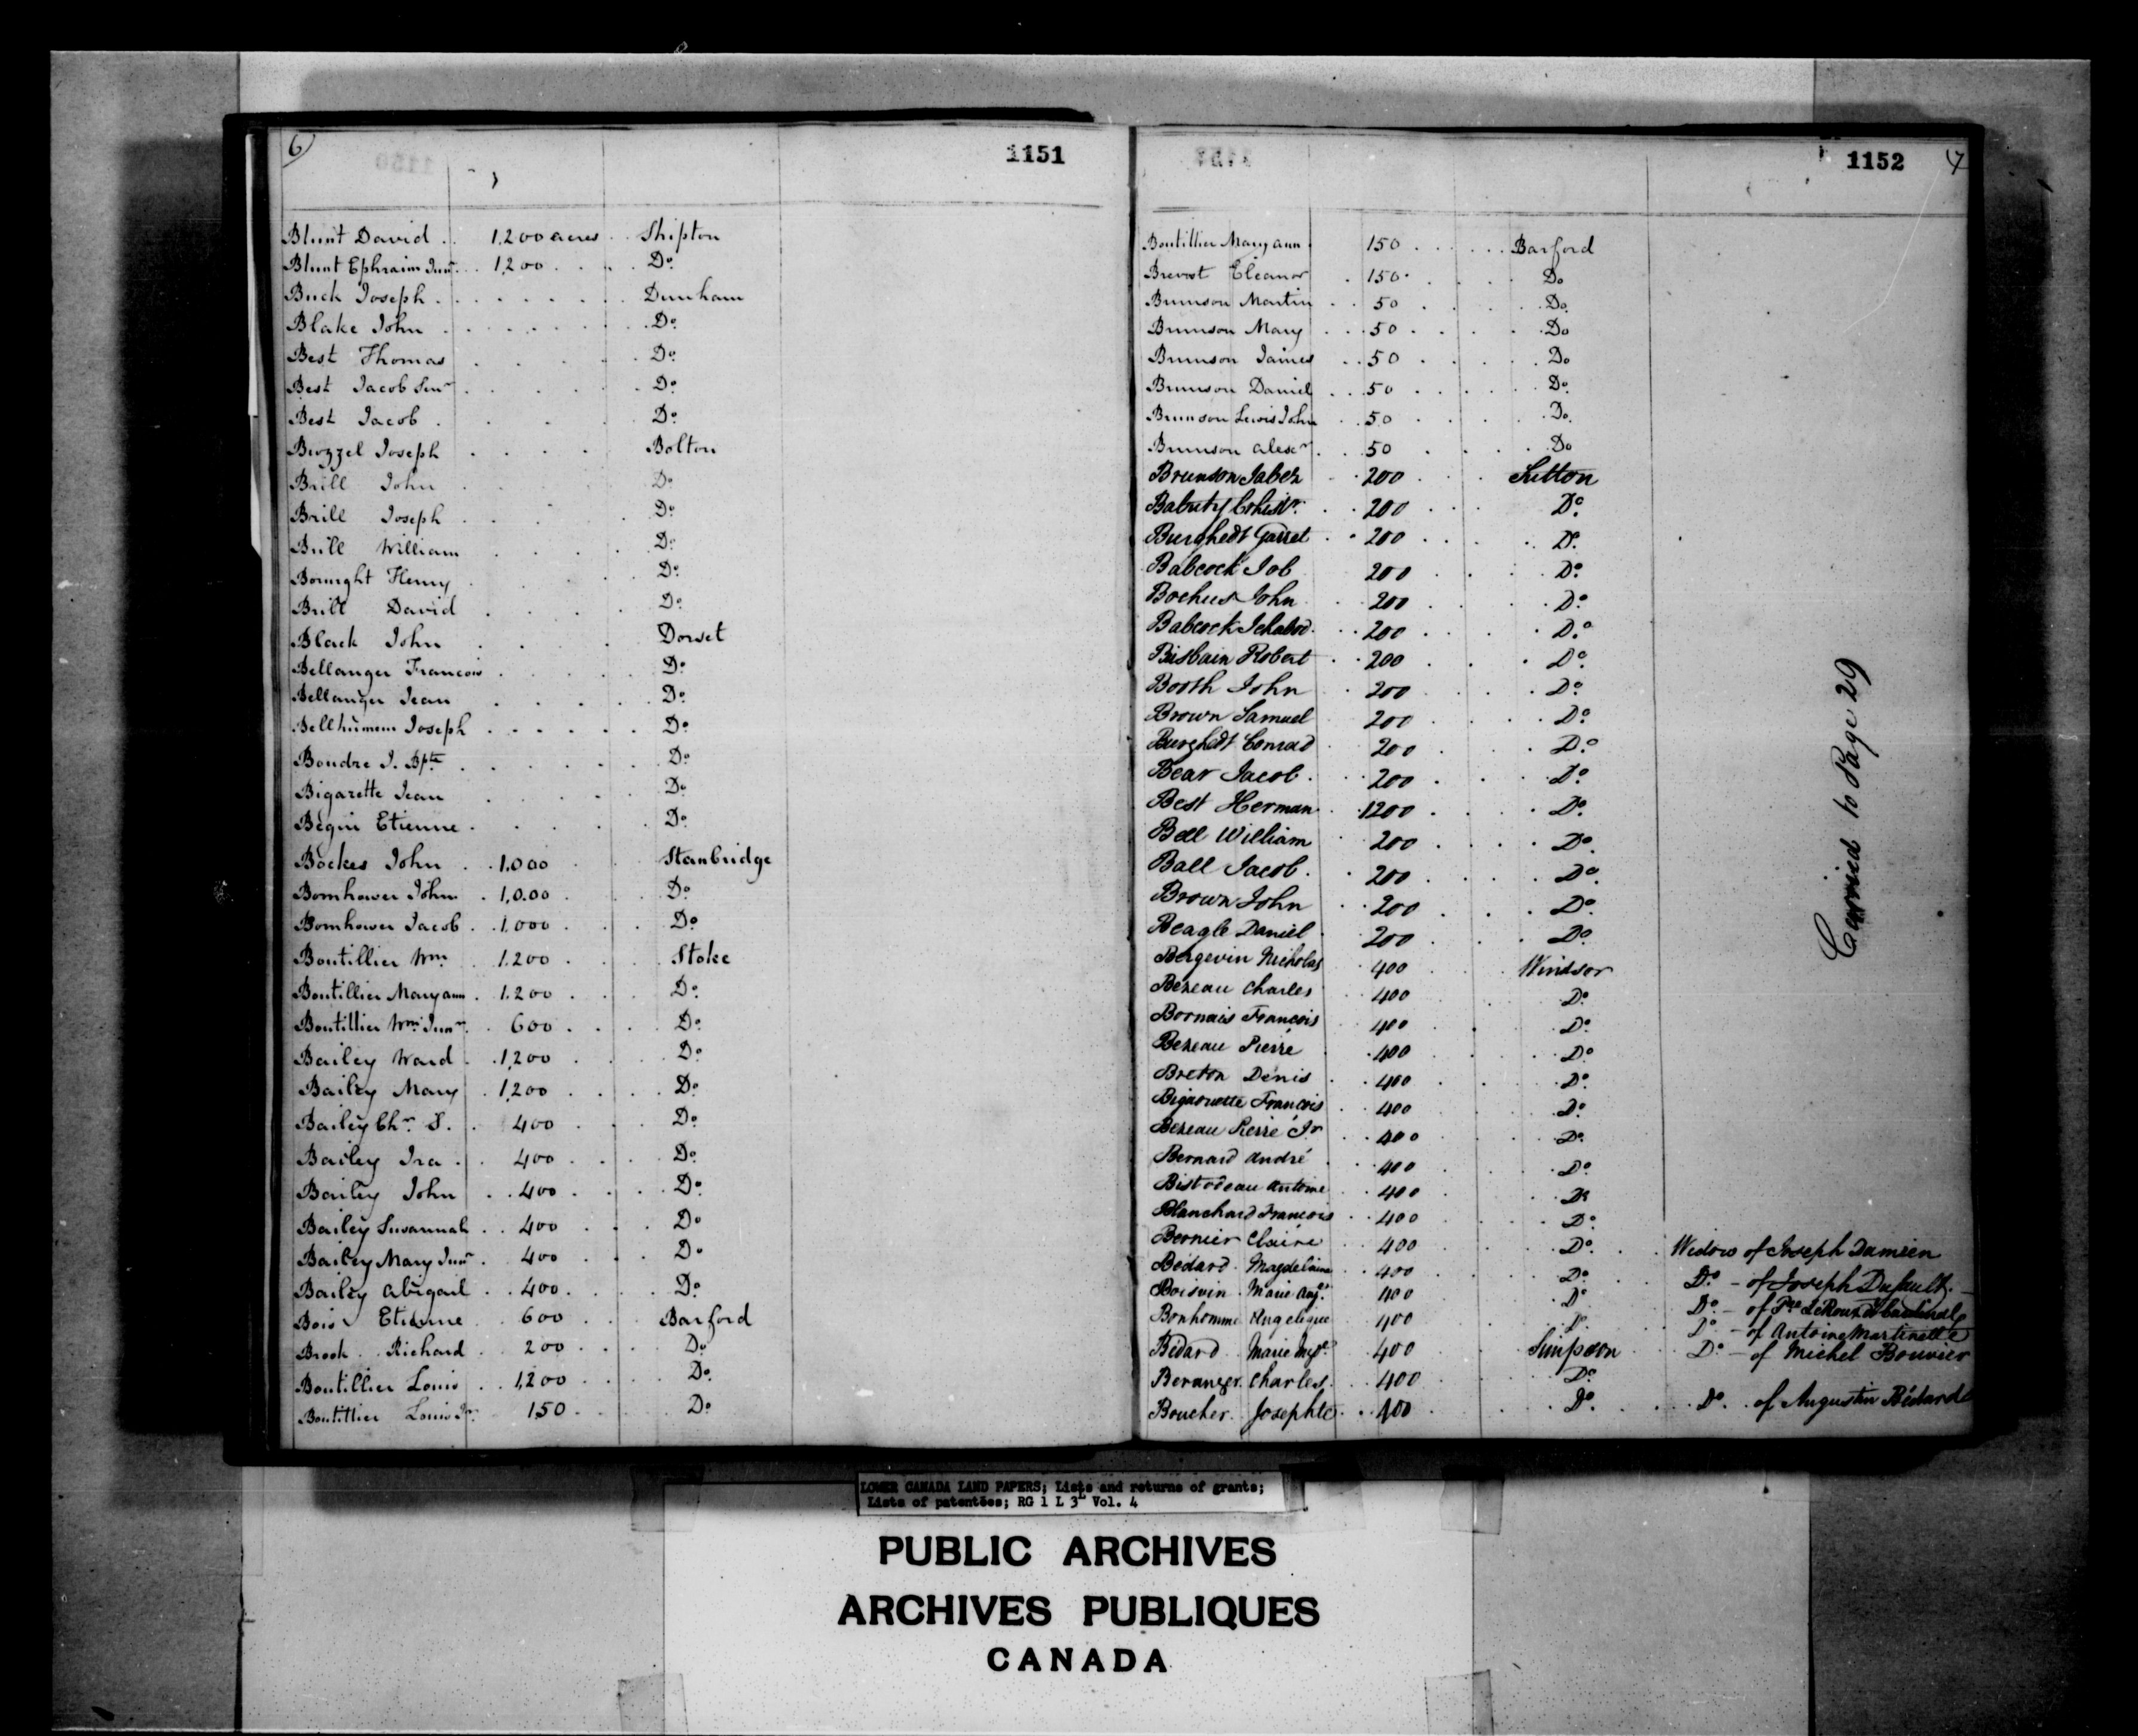 6
1151
Blunt David . . 1,200 acres . . Shipton
Blunt Ephraim Junr. . . 1,200 . . . . Do
Buck Joseph . . . . . . . . Dunham
Blake John . . . . . . . . Do
Best Thomas . . . . . Do
Best Jacob Senr . . . . . Do
Best Jacob . . . . Do
Buzzel Joseph . . . . Bolton
Brill John . . . . Do
Brill Joseph . . . . Do
Brill William . . . . Do
Henry . . . . Do
Brill David . . . . Do
Black John . . . . Dorset
Bellanger Francois . . . . . Do
Bellanger Jean . . . . . Do
Bellhumeur Joseph . . . . . . Do
Boudre J. Bpte . . . . . . Do
Bigarette Jean . . . . Do
Bégin Etienne . . . . . Do
Bockes John . . 1,000 . . Stanbridge
Bomhower John . 1,000 . . . Do
Bomhower Jacob . . 1,000 . . . Do
Boutillier Wm . 1.200 . . . Stoke
Boutillier Maryann . 1.200 . . . Do
Boutillier Wm Junr. . 600 . . . Do
Bailey Ward . . 1,200 . . . Do
Bailey Mary . 1,200 . . . . Do
Bailey Chr. S. . 400 . . . Do
Bailey Ira . . 400 . . . Do
Bailey John . . 400 . . . Do
Bailey Susannah . . 400 . . . Do
Bailey Mary Junr . . 400 . . . Do
Bailey Abigail . . 400 . . . . Do
Bois Etienne 600 . . . Barford
Brook . . Richard . 200 . . . . Do
Boutillier Louis . . 1,200 . . . . Do
Boutillier Louis Jr. . 150 . . . . Do
1152
7
Boutillier Maryann . 150 . . . . . . Barford
Brevost Eleanor . 150 . . . . Do
Brunson Martin . . 50 . . . . Do
Brunson Mary . . . 50 . . . . Do
Brunson James . . 50 . . . . Do
Brunson Daniel . . 50 . . . . Do
Brunson Lewis John . . 50 . . . . Do
Brunson Alexr . . . 50 . . . . Do
Brunson Jabez . . 200 . . . Sutton
. . 200 . . . Do
Burghedt Garret . . 200 . . . . Do
Babcock Job 200 . . . Do
Bochus John . 200 . . . Do
Babcock Ichabod . . 200 . . . Do
Bisbain Robert . . 200 . . . Do
Booth John . 200 . . . Do
Brown Samuel 200 . . . Do
Burghedt Conrad . 200 . . . Do
Bear Jacob . . . 200 . . . Do
Best Herman . . 1200 . . . Do
Bell William . 200 . . . Do
Ball Jacob . . 200 . . . Do
Brown John . . 200 . . . Do
Beagle Daniel . 200 . . . Do
Bergevin Nicholas . 400 . . Windsor
Bezeau Charles . . 400 . . Do
Bornais François . 400 . . Do
Bezeau Pierre . . 400 . . Do
Breton Denis . . 400 . . . Do
Bigaouette François . . 400 . . . Do
Bezeau Pierre Jr . . 400 . . . Do
Bernard André . . 400 . . . Do
Bistodeau Antoine . 400 . . . Do
Blanchard François . . 400 . . . Do
Bernier Claire . . 400 . . . Do . . . Widow of Joseph Damien
Bédard . Magdelaine . 400 . . Do Do - of Joseph Dufault
Boisvin . Marie Angle. . 400 . . Do Do - of
Bonhomme Angelique . 400 . . Do Do - of Antoine Martinette
Bédard . . Marie . 400 . . Simpson . . Do - of Michel Bouvier
Beranger Charles . . . 400 . . Do
Boucher . Josephte . . 400 . . . Do . . . Do . . of Augustin Bédard
Carried to Page 29
LOWER CANADA LAND PAPERS; Lists and returns of grants;
Lists of patentées; RG 1 L 3L Vol. 4
PUBLIC ARCHIVES
ARCHIVES PUBLIQUES
CANADA